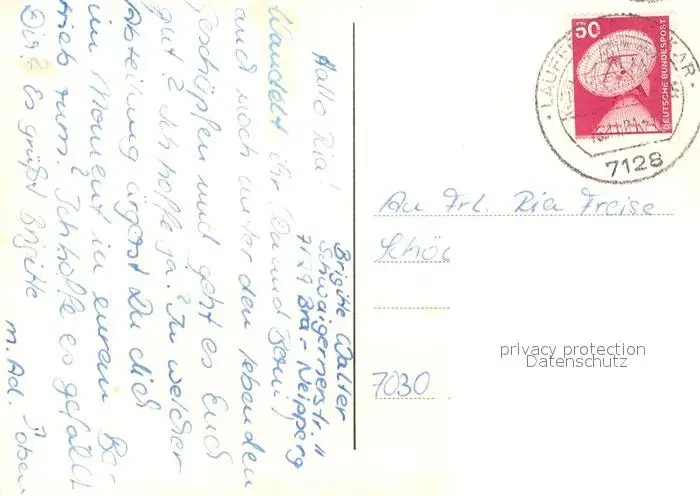 Hallo Ria!
Wandelt ihr (Du und Jeni)
und noch unter den lebenden
Geschöpfen und geht es Euch
gut? Ich hoffe ja. In welcher
Abteilung ärgerst Du dich
im Moment in eurem Be-
trieb rum? Ich hoffe es gefällt
Dir? Es grüßt Brigitte
m. Ad. oben
Brigitte Walter
Schwaigernerstr. 11
7129 Bra-Neipperg
50
DEUTSCHE BUNDESPOST
LAUFFEN
7128
An Frl. Ria Freise
Schö
7030
privacy protection
Datenschutz